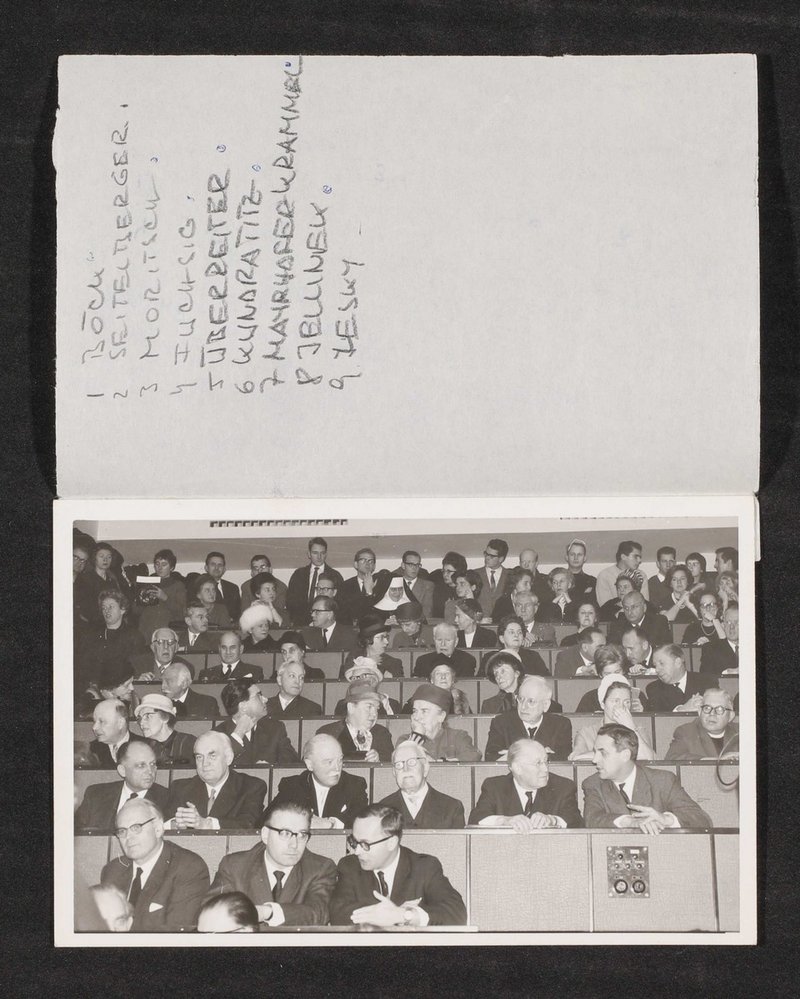 1 BÖCK
2 SEITELBERGER.
3 MORITSCH.
4 FUCHSIG.
5 ÜBERREITER.
6 KUNDRATITZ.
7 MAYRHOFER-KRAMMEL.
8 JELLINEK.
9. HESKY